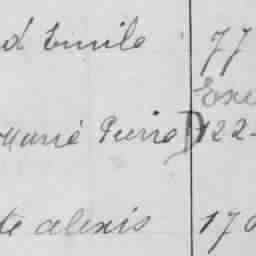 d Emile 77
Exe
Marie Pierre 122-
te alexis 170